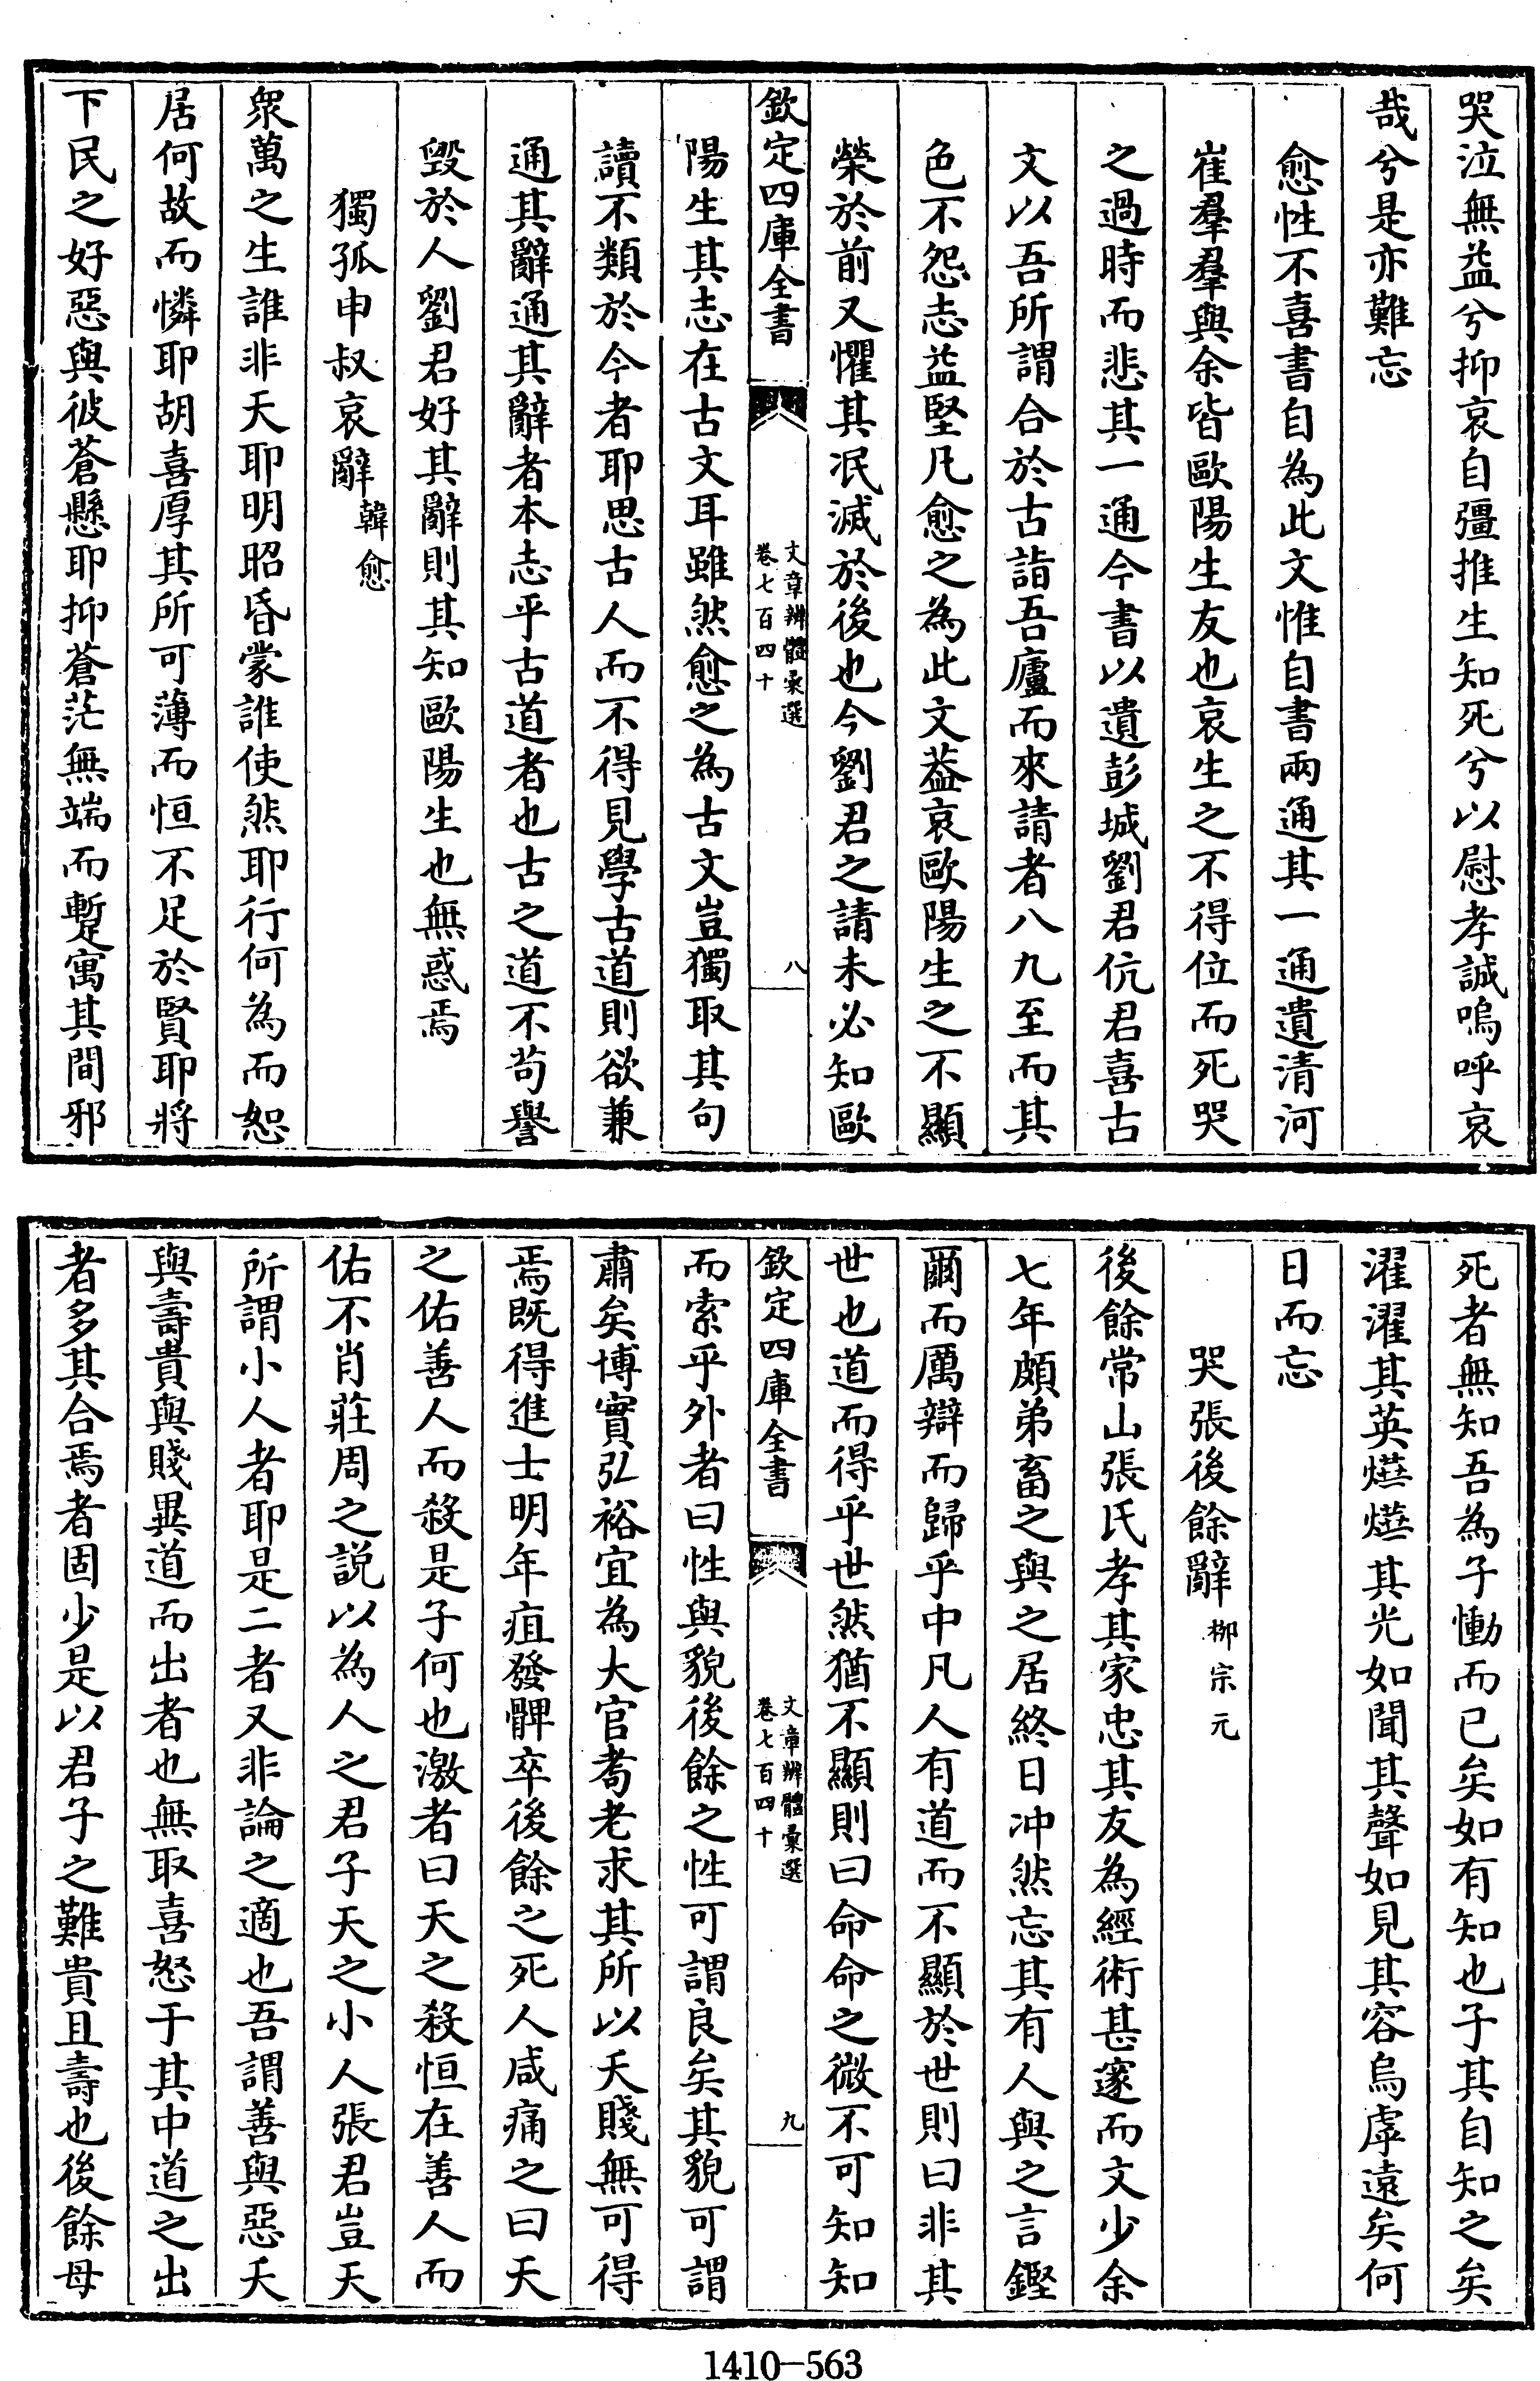 哭泣無益兮抑哀自彊推生知死兮以慰孝誠嗚呼哀
哉兮是亦難忘
愈性不喜書自為此文惟自書兩通其一通遺清河
崔羣羣與余皆歐陽生友也哀生之不得位而死哭
之過時而悲其一通今書以遺彭城劉君伉君喜古
文以吾所謂合於古詣吾廬而來請者八九至而其
色不怨志益堅凡愈之為此文葢哀歐陽生之不顯
榮於前又懼其泯滅於後也今劉君之請未必知歐
欽定四庫全書
文章辨體彙選
卷七百四十
八
陽生其志在古文耳雖然愈之為古文豈獨取其句
讀不類於今者耶思古人而不得見學古道則欲兼
通其辭通其辭者本志乎古道者也古之道不苟譽
毀於人劉君好其辭則其知歐陽生也無惑焉
獨孤申叔哀辭韓愈
衆萬之生誰非天耶明昭昏蒙誰使然耶行何為而恕
居何故而憐耶胡喜厚其所可薄而恒不足於賢耶將
下民之好惡與彼蒼懸耶抑蒼茫無端而蹔寓其間邪
死者無知吾為子慟而已矣如有知也子其自知之矣
濯濯其英燁燁其光如聞其聲如見其容烏虖遠矣何
日而忘
哭張後餘辭柳宗元
後餘常山張氏孝其家忠其友為經術甚邃而文少余
七年頗弟畜之與之居終日冲然忘其有人與之言鏗
爾而厲辯而歸乎中凡人有道而不顯於世則曰非其
世也道而得乎世然猶不顯則曰命命之微不可知知
欽定四庫全書
文章辨體彙選
卷七百四十
九
而索乎外者曰性與貌後餘之性可謂良矣其貌可謂
肅矣博實弘裕宜為大官耇老求其所以夭賤無可得
焉既得進士明年疽發髀卒後餘之死人咸痛之曰天
之佑善人而殺是子何也激者曰天之殺恒在善人而
佑不肖莊周之説以為人之君子天之小人張君豈天
所謂小人者耶是二者又非論之適也吾謂善與惡夭
與壽貴與賤異道而出者也無取喜怒于其中道之出
者多其合焉者固少是以君子之難貴且壽也後餘母
1410-563